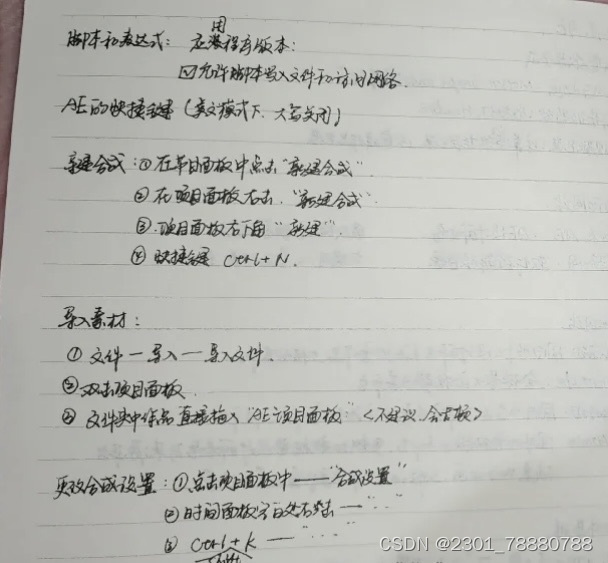 脚本和表达式：应用程序版本：
☑允许脚本写入文件和访问网络.
AE的快捷键（英文模式下，大写关闭）
新建合成：① 在项目面板中点击“新建合成”
② 在项目面板右击，“新建合成”
③ 项目面板右下角“新建”.
④ 快捷键 Ctrl+N.
导入素材：
① 文件—导入—导入文件.
② 双击项目面板.
③ 文件夹中 直接拖入“AE项目面板”<不建议，会卡顿>
更改合成设置：① 点击项目面板中——“合成设置”
② 时间面板空白处右击—“..”
③ ctrl+K —“...”
CSDN @2301_78880788